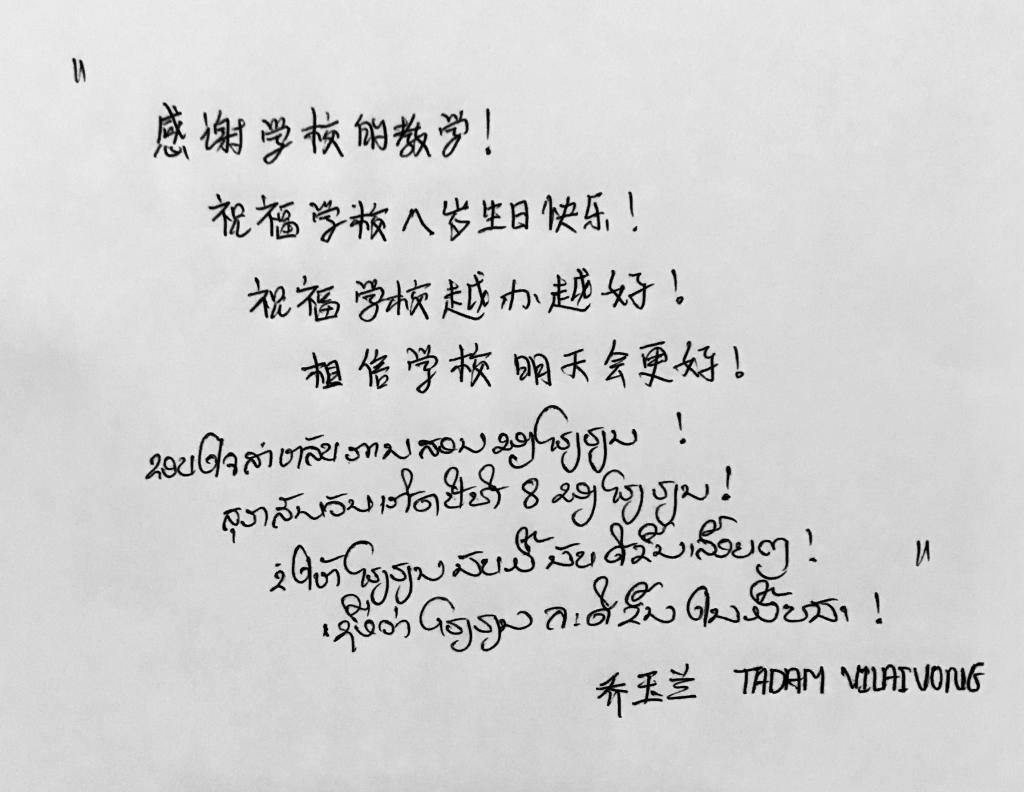 "
感谢学校的教学!
祝福学校八岁生日快乐!
祝福学校越办越好!
相信学校明天会更好!
ຂອບໃຈສຳຫລັບການສອນຂອງໂຮງຮຽນ !
ສຸຂສັນວັນເກີດປີທີ 8 ຂອງໂຮງຮຽນ!
ຂໍໃຫ້ໂຮງຮຽນນັບມື້ນັບດີຂຶ້ນເລື້ອຍໆ! "
ເຊື່ອວ່າໂຮງຮຽນຈະດີຂຶ້ນໃນມື້ຫນ້າ!
乔玉兰 TADAM VILAIVONG